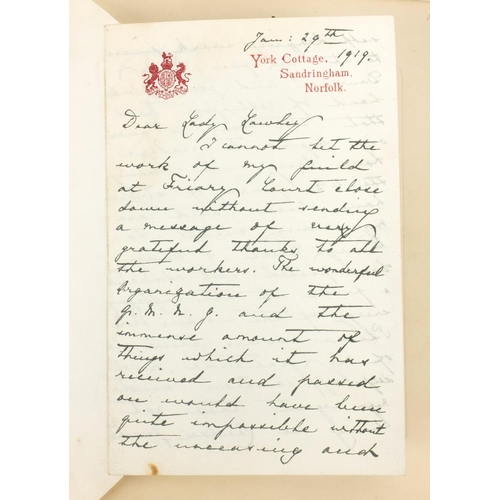 Jan: 29th 1919.
York Cottage,
Sandringham,
Norfolk.
Dear Lady Lawley
I cannot let the
work of my guild
at Friary Court close
down without sending
a message of very
grateful thanks to all
the workers. The wonderful
organization of the
Q. M. N. G. and the
immense amount of
things which it has
received and passed
on would have been
quite impossible without
the unceasing and